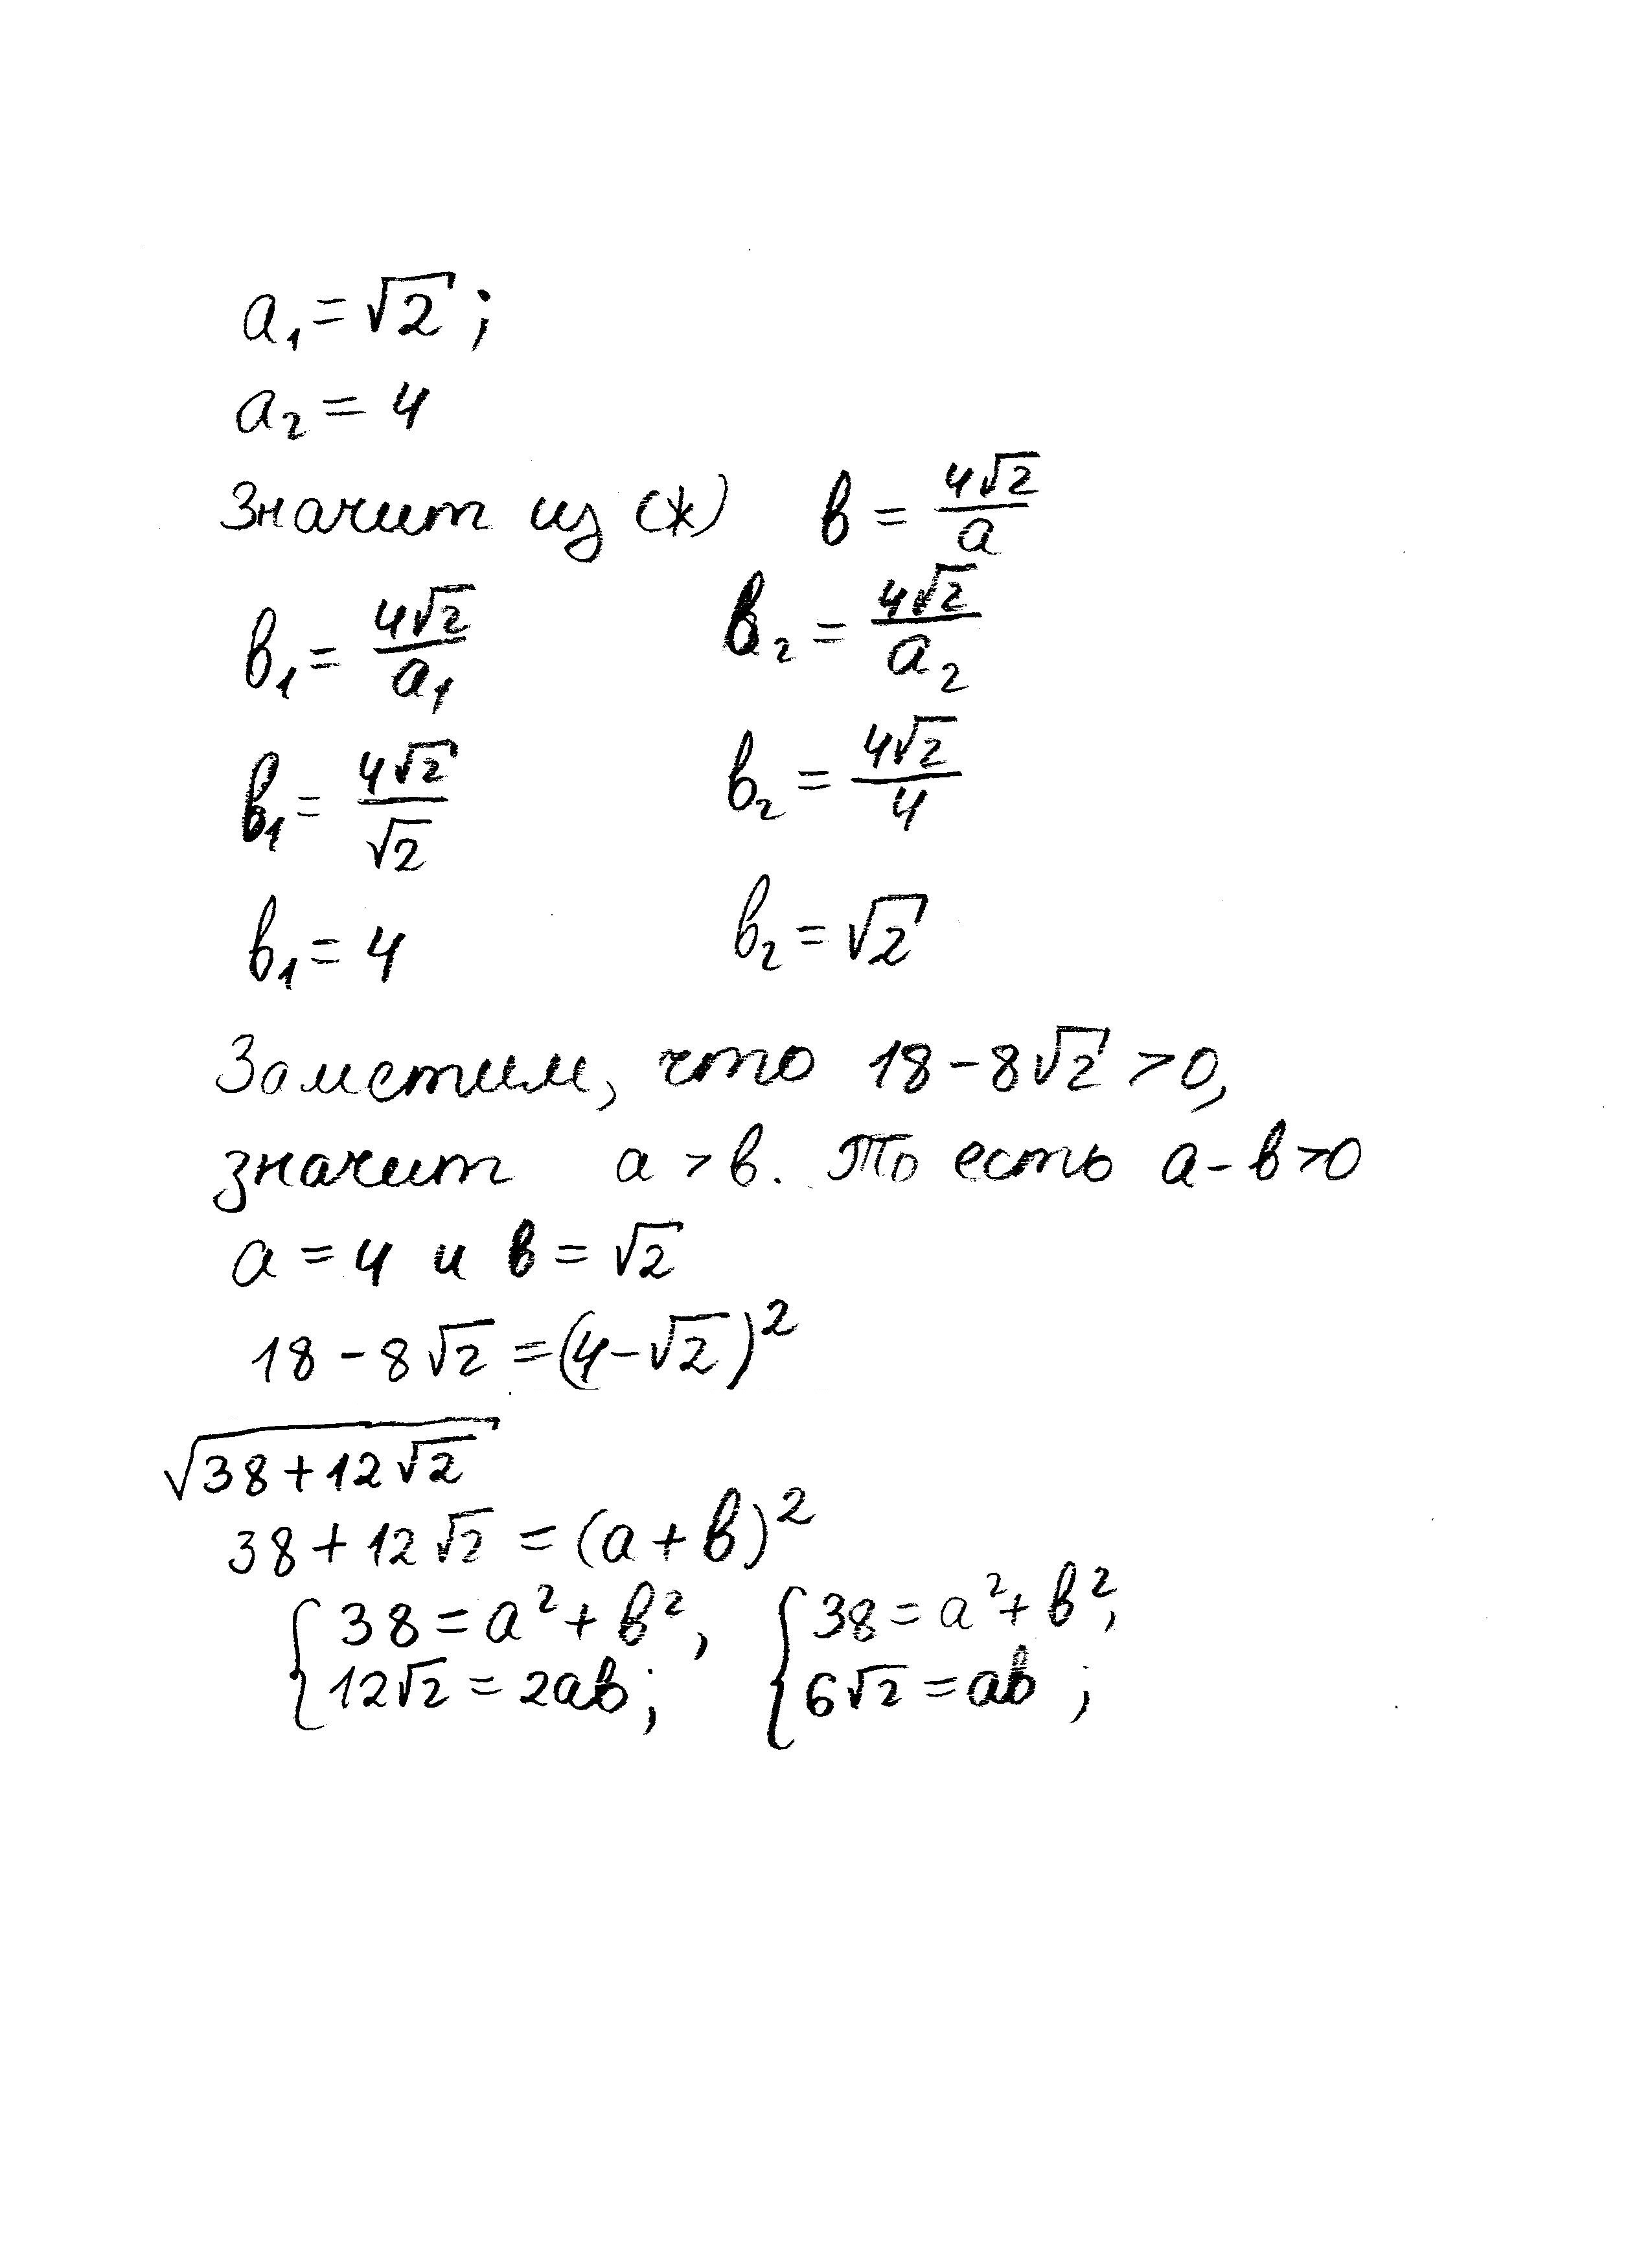 a₁ = √2 ;
a₂ = 4
Значит из (*) в = 4√2/a
в₁ = 4√2/a₁ в₂ = 4√2/a₂
в₁ = 4√2/√2 в₂ = 4√2/4
в₁ = 4 в₂ = √2
Заметим, что 18 - 8√2 > 0,
значит a > в. То есть a - в > 0
a = 4 и в = √2
18 - 8√2 = (4 - √2)²
√(38 + 12√2)
38 + 12√2 = (a + в)²
{ 38 = a² + в², { 38 = a² + в²,
{ 12√2 = 2aв; { 6√2 = aв ;